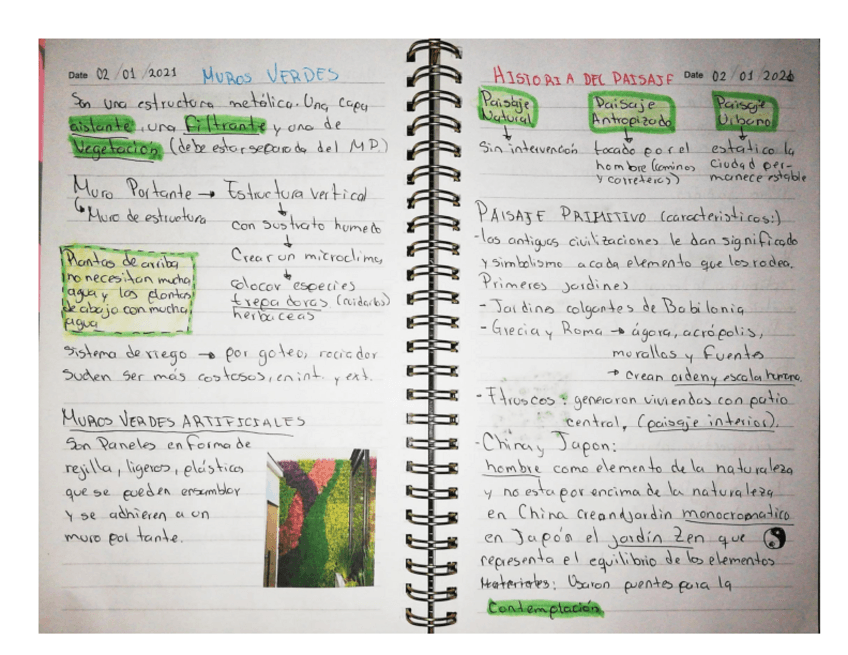 Date 02/01/2021 MUROS VERDES
Son una estructura metálica. Una capa
aislante, una filtrante y una de
vegetación (debe estar separada del M.P.)
Muro Portante → Estructura vertical
↳ Muro de estructura
↓
con sustrato humedo
↓
Crear un microclima
↓
colocar especies
trepadoras (cuidarlos)
herbaceas
Plantas de arriba
no necesitan mucha
agua y las plantas
de abajo con mucha
agua
Sistema de riego → por goteo, rociador
Suelen ser más costosos, en int. y ext.
MUROS VERDES ARTIFICIALES
Son Paneles en forma de
rejilla, ligeros, plásticos
que se pueden ensamblar
y se adhieren a un
muro portante.
HISTORIA DEL PAISAJE Date 02/01/2021
Paisaje
Natural
↓
Sin intervención
Paisaje
Antropizado
↓
tocado por el
hombre (caminos
y carreteras)
Paisaje
Urbano
↓
estático la
Ciudad per-
manece estable
PAISAJE PRIMITIVO (caracteristicas:)
-las antiguas civilizaciones le dan significado
y simbolismo a cada elemento que los rodea.
Primeros jardines
- Jardines colgantes de Babilonia
- Grecia y Roma → ágora, acrópolis,
murallas y fuentes
→ crean orden y escala humana.
- Etruscos: generaron viviendas con patio
central, (paisaje interior).
- China y Japon:
hombre como elemento de la naturaleza
y no esta por encima de la naturaleza
en China crean jardin monocromatico
en Japón el jardín Zen que
representa el equilibrio de los elementos
Materiales: Usaron puentes para la
Contemplación